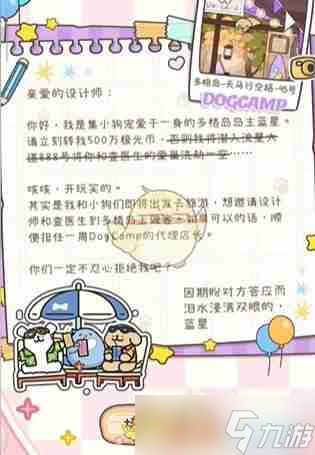 多格岛-天马行空路-95号
DOGCAMP
亲爱的设计师：
你好，我是集小狗宠爱于一身的多格岛岛主蓝星。
请立刻转我500万极光币，否则我将潜入流星大
道888号将你和查医生的
咳咳，开玩笑的。
其实是我和小狗们即将出发去旅游，想邀请设计
师和查医生到多格岛上做客。如果可以的话，顺
便担任一周DogCamp的代理店长。
你们一定不忍心拒绝我吧？
因期盼对方答应而
泪水浸满双眼的，
蓝星
九游